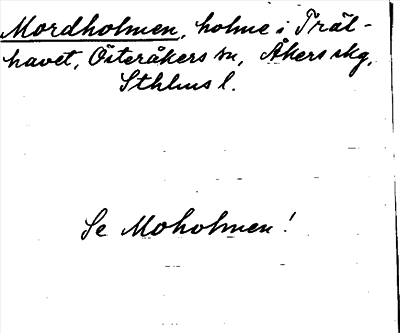 Mordholmen, holme i Träl-
havet, Österåkers sn, Åkers skg,
Sthlms l.
Se Moholmen!